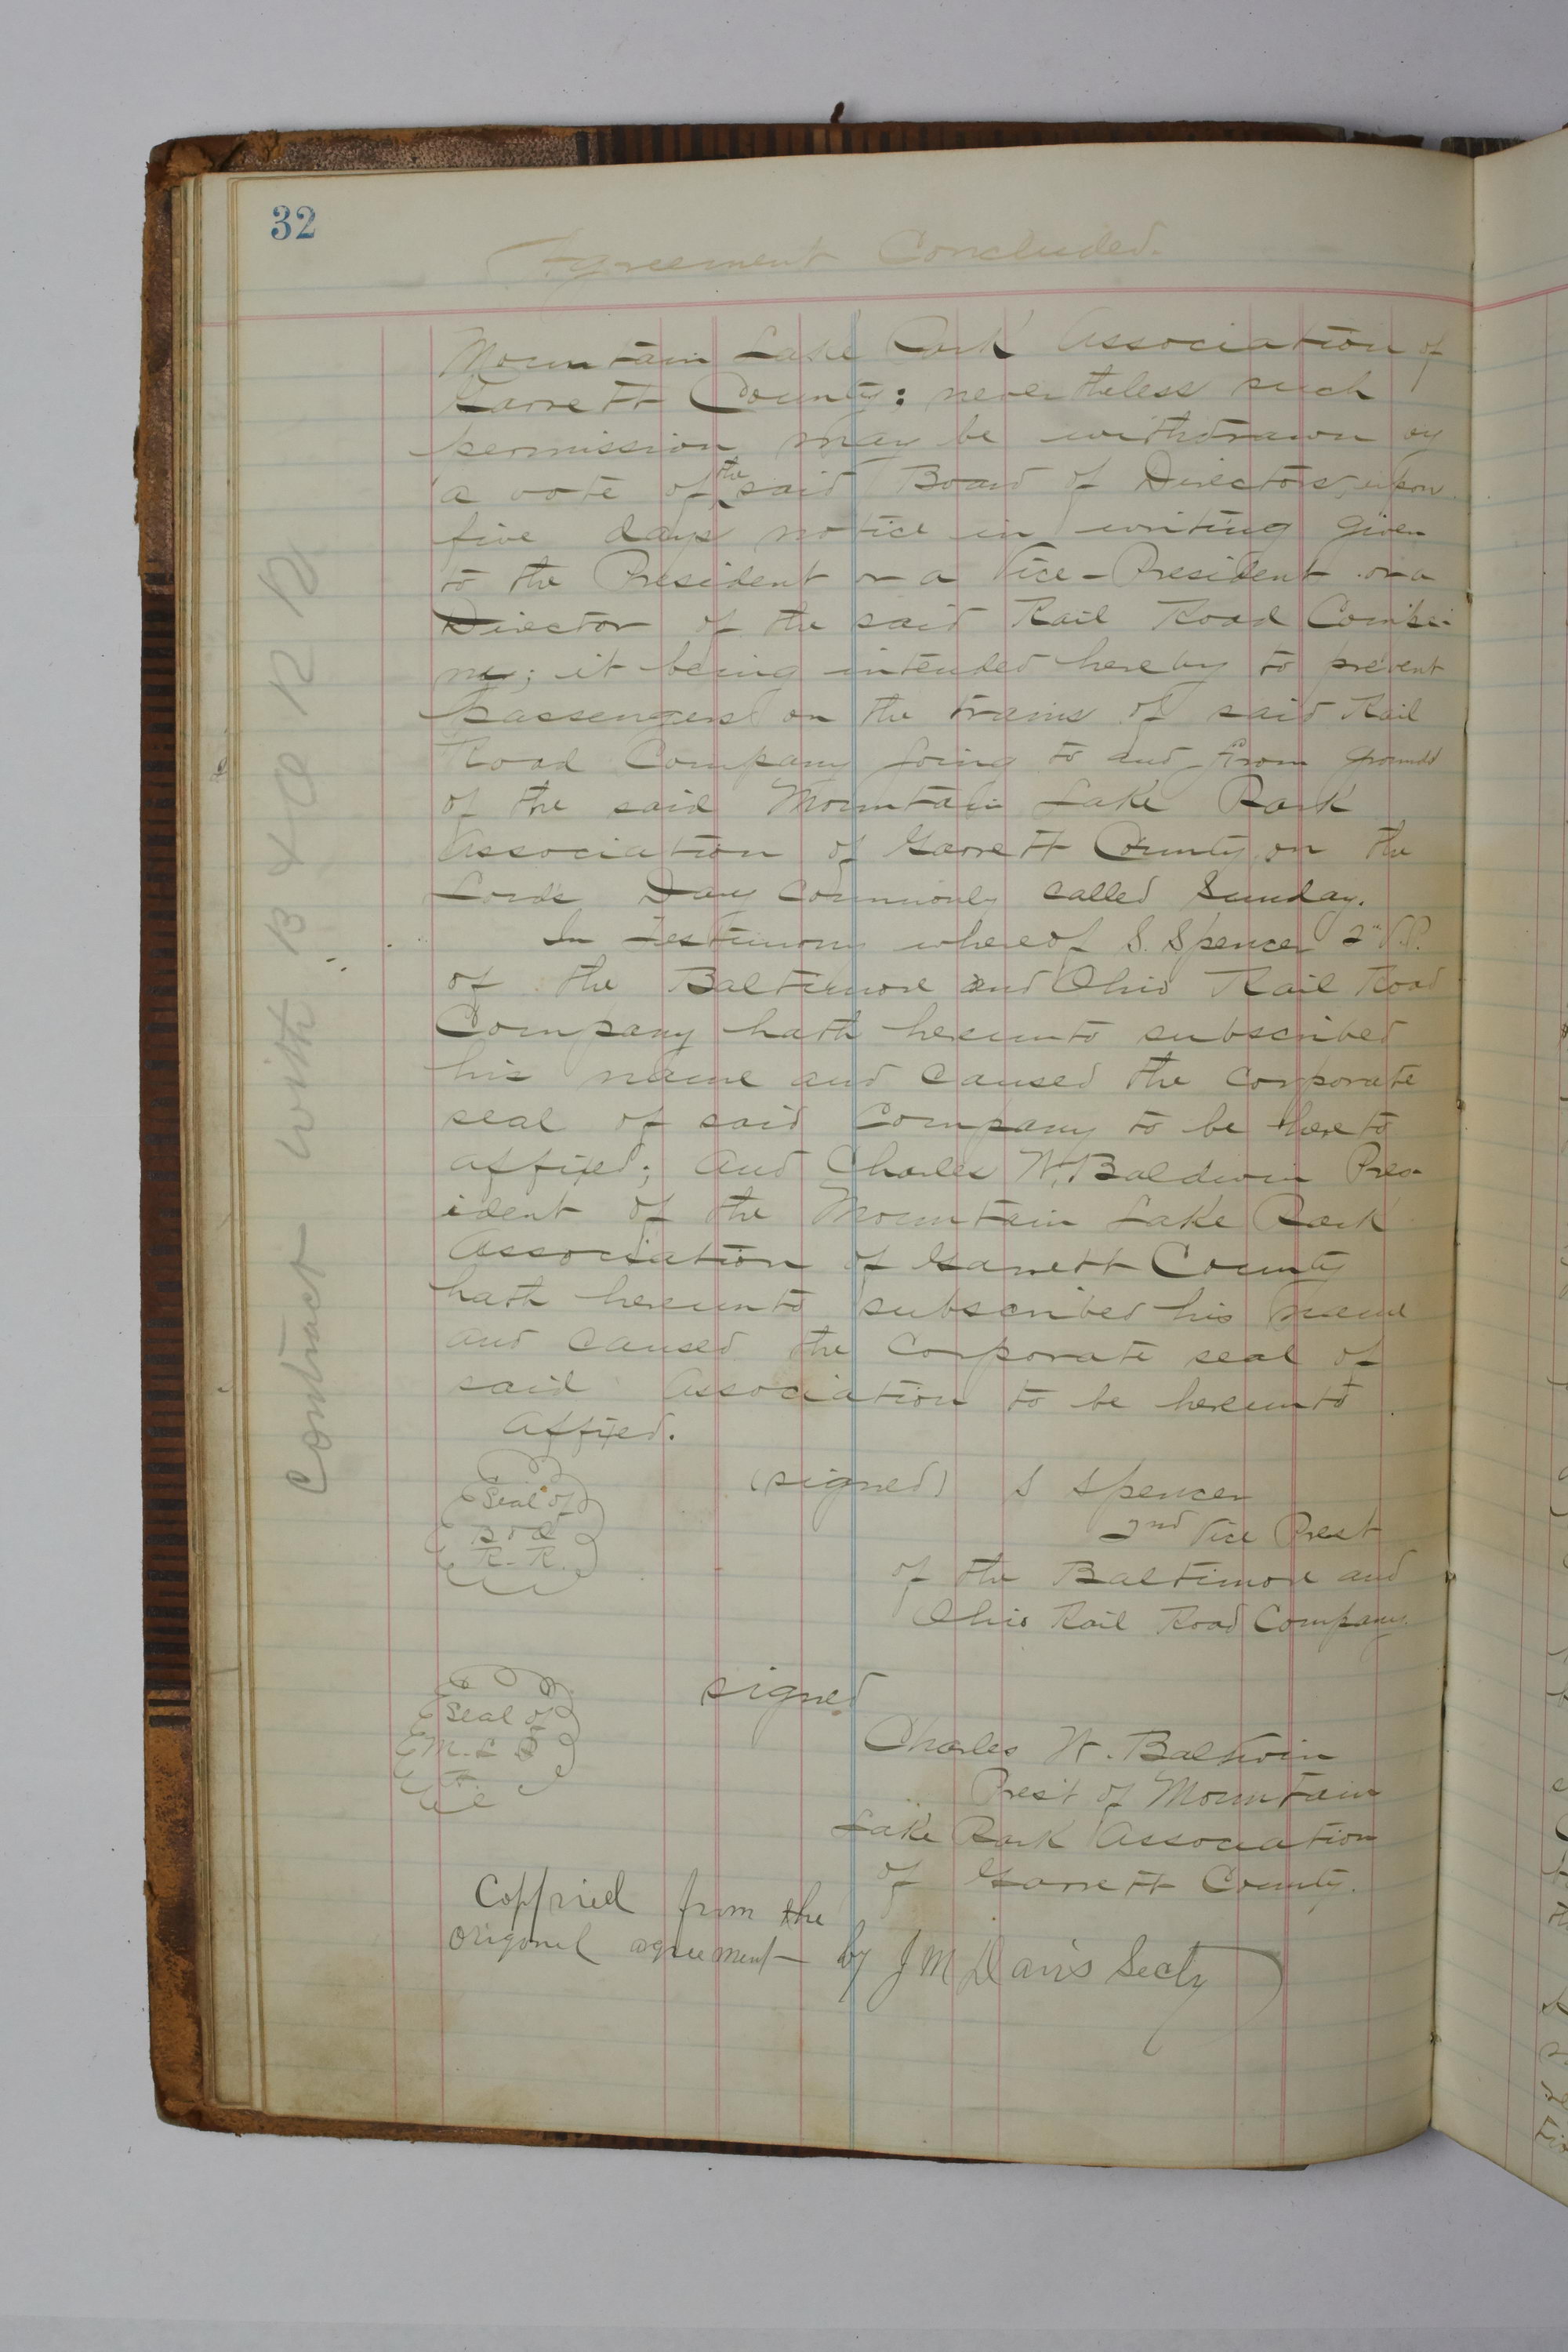 32
Agreement Concluded.
Mountain Lake Park Association of
Garrett County: nevertheless such
permission may be withdrawn by
a vote of the said Board of Directors, upon
five days notice in writing given
to the President or a Vice-President or a
Director of the said Rail Road Compa-
ny; it being intended hereby to prevent
passengers on the trains of said Rail
Road Company going to and from grounds
of the said Mountain Lake Park
Association of Garrett County on the
Lords Day commonly called Sunday.
In Testimony whereof S. Spencer 2nd V.P.
of the Baltimore and Ohio Rail Road
Company hath hereunto subscribed
his name and caused the corporate
seal of said Company to be hereto
affixed; and Charles W. Baldwin Pres-
ident of the Mountain Lake Park
Association of Garrett County
hath hereunto subscribed his name
and caused the Corporate seal of
said Association to be hereunto
affixed.
(signed) S Spencer
2nd Vice Prest
of the Baltimore and
Ohio Rail Road Company
Seal of
B & O
R. R.
signed
Charles W. Baldwin
Pres't of Mountain
Lake Park Association
of Garrett County.
Seal of
M. L.
Coppried from the
origonel agreement by J M Davis Secty
Contract with B & O R R